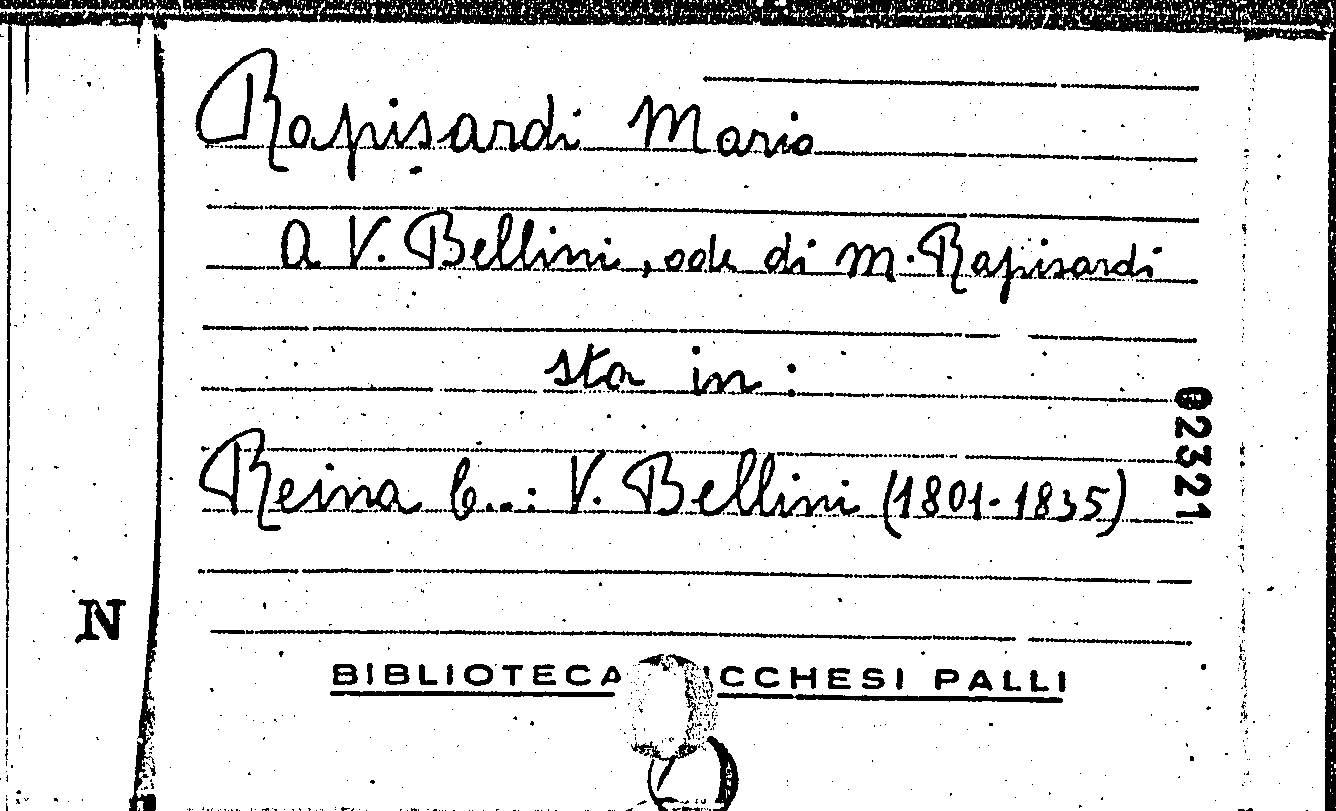 Rapisardi Mario
A V. Bellini, ode di M. Rapisardi
sta in:
Reina C...: V. Bellini (1801-1835)
02321
N
BIBLIOTECA CCHESI PALLI